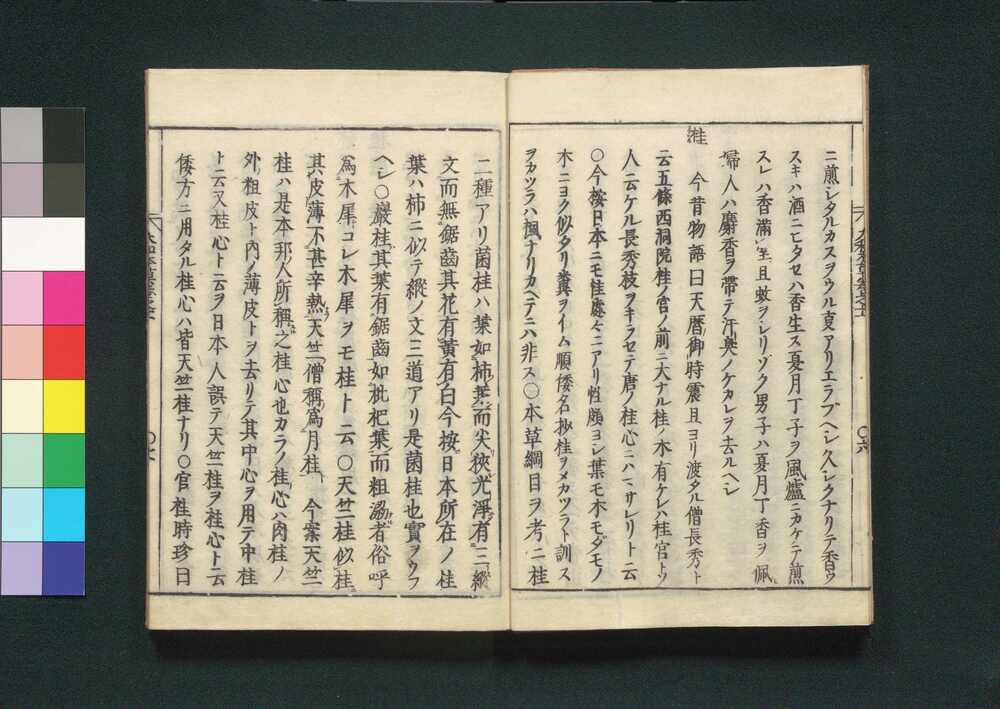 ニ煎シタルカスヲウル叓アリエラブヘシ久シクナリテ香ウ
スキハ酒ニヒタセハ香生ス夏月丁子ヲ風爐ニカケテ煎
スレハ香滿室且蚊ヲシリゾク男子ハ夏月丁香ヲ佩
婦人ハ麝香ヲ帶テ汗臭ノケカレヲ去ルヘシ
桂
今昔物語曰天暦御時震旦ヨリ渡タル僧長秀ト
云五條西洞院桂ノ宮ノ前ニ大ナル桂ノ木有ケレハ桂宮トソ
人云ケル長秀枝ヲキラセテ唐ノ桂心ニハマサレリト云
〇今按日本ニモ桂處々ニアリ性頗ヨシ葉モ木モダモノ
木ニヨク似タリ糞ヲイム順倭名抄桂ヲメカツラト訓ス
ヲカツラハ楓ナリカヘテニハ非ス〇本草綱目ヲ考ニ桂
〇六
二種アリ菌桂ハ葉如柿葉而尖狹光淨有三縱
文而無鋸齒其花有黄有白今按日本所在ノ桂
葉ハ柿ニ似テ縱ノ文三道アリ是菌桂也實ヲウフ
ヘシ〇巖桂其葉有鋸齒如枇杷葉而粗澁者俗呼
爲木犀コレ木犀ヲモ桂ト云〇天竺桂似桂
其皮薄不甚辛熱天竺僧稱爲月桂今案天竺
桂ハ是本邦人所稱之桂心也カラノ桂心ハ肉桂ノ
外粗皮ト内ノ薄皮トヲ去リテ其中心ヲ用テ中桂
ト云又桂心ト云ヲ日本人誤テ天竺桂ヲ桂心ト云
倭方ニ用タル桂心ハ皆天竺桂ナリ〇官桂時珍曰